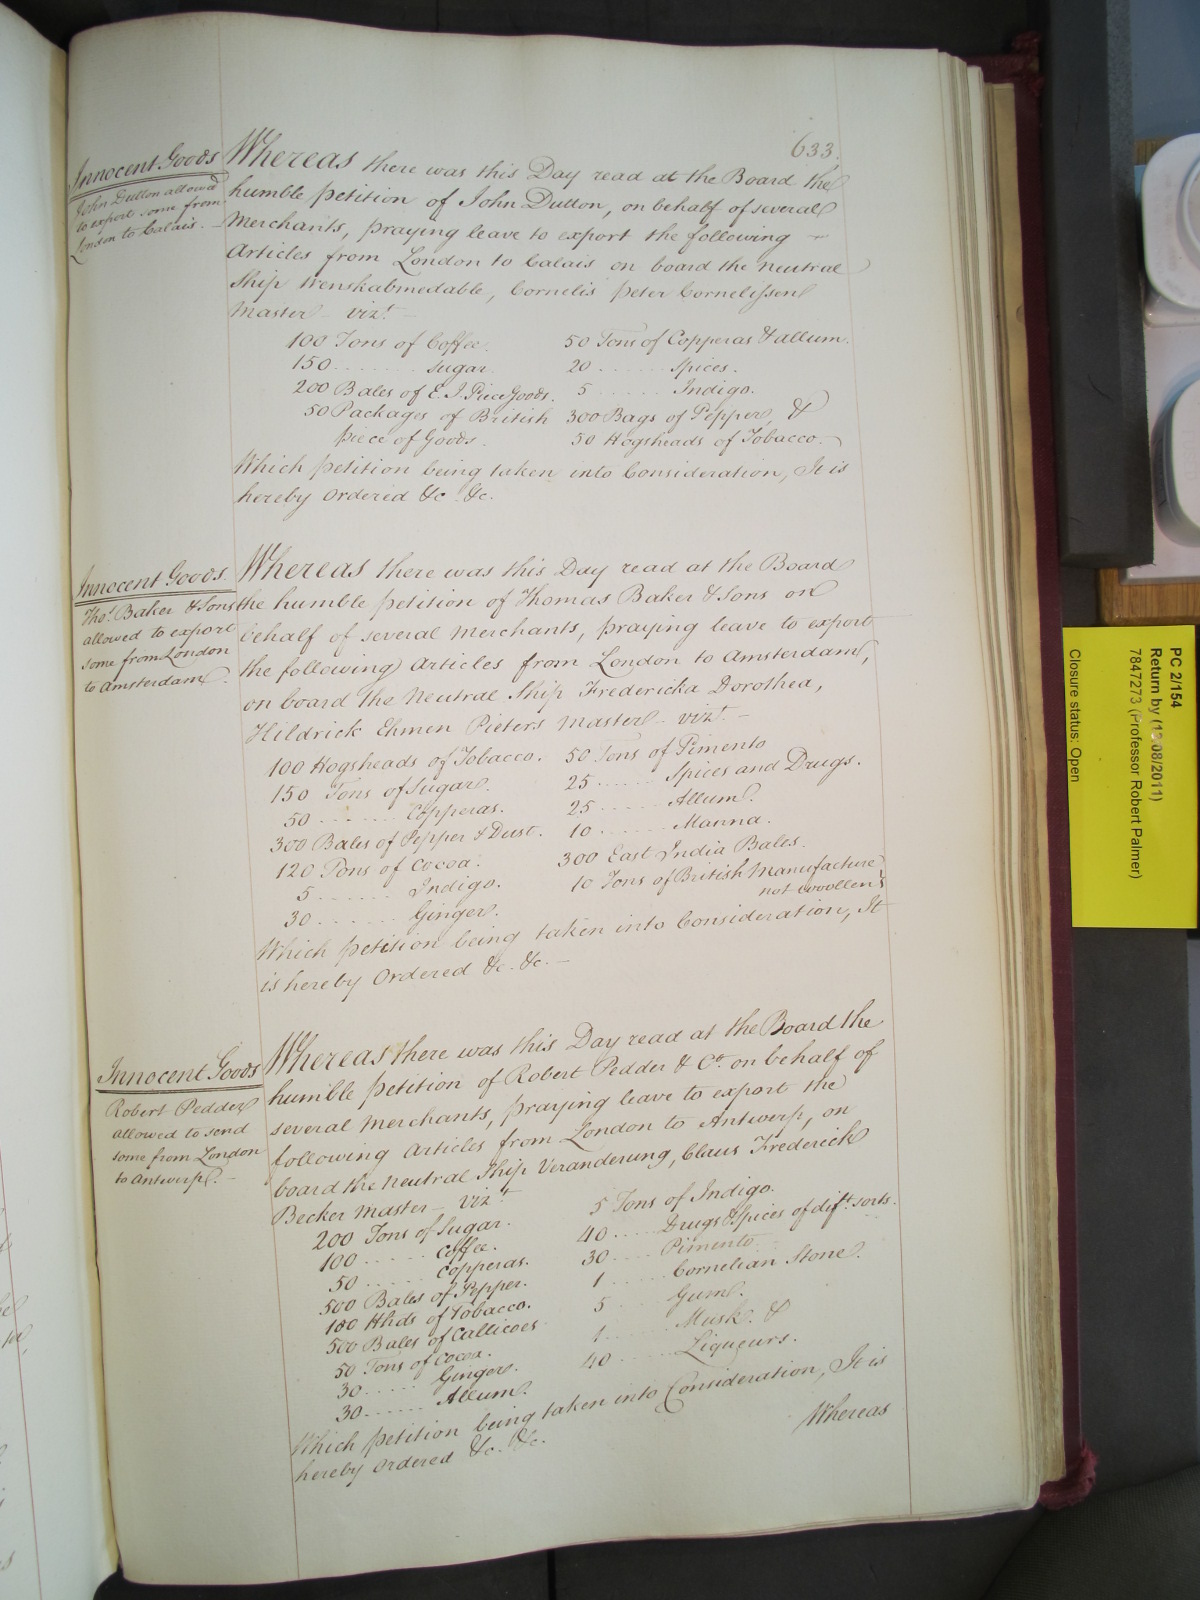 633.
Innocent Goods
John Dutton allowed
to export some from
London to Calais.
Whereas there was this Day read at the Board the
humble petition of John Dutton, on behalf of several
Merchants, praying leave to export the following
Articles from London to Calais on board the neutral
Ship Wenskabmedable, Cornelis Peter Cornelissen
Master vizt.
100 Tons of Coffee.
150 ........ Sugar.
200 Bales of E. I. Piece Goods.
50 Packages of British
piece of Goods.
50 Tons of Copperas & allum.
20 ....... Spices.
5 ....... Indigo.
300 Bags of Pepper, &
50 Hogsheads of Tobacco.
Which petition being taken into Consideration, It is
hereby Ordered &c. &c.
Innocent Goods.
Thos. Baker & Sons
allowed to export
some from London
to Amsterdam.
Whereas there was this Day read at the Board
the humble petition of Thomas Baker & Sons on
behalf of several Merchants, praying leave to export
the following Articles from London to Amsterdam,
on board the Neutral Ship Fredericka Dorothea,
Hildrick Ehmen Pieters Master vizt.
100 Hogsheads of Tobacco.
150 Tons of Sugar.
50 ....... Copperas.
300 Bales of Pepper & Dust.
120 Tons of Cocoa.
5 ....... Indigo.
30 ....... Ginger.
50 Tons of Pimento
25 ...... Spices and Drugs.
25 ...... Allum.
10 ...... Manna.
300 East India Bales.
10 Tons of British Manufacture
not woollen
Which petition being taken into Consideration, It
is hereby Ordered &c. &c.
Innocent Goods
Robert Pedder
allowed to send
some from London
to Antwerp.
Whereas there was this Day read at the Board the
humble petition of Robert Pedder & Co. on behalf of
several Merchants, praying leave to export the
following Articles from London to Antwerp, on
board the neutral Ship Veranderung, Claus Frederick
Becker Master vizt.
200 Tons of Sugar.
100 ...... Coffee.
50 ...... Copperas.
500 Bales of Pepper.
100 Hhds of Tobacco.
500 Bales of Callicoes
50 Tons of Cocoa.
30 ..... Ginger.
30 ..... Allum.
5 Tons of Indigo.
40 ..... Drugs & Spices of difft. sorts.
30 ..... Pimento
1 ...... Cornelian Stone.
5 ..... Gum.
1 ...... Musk. &
40 ..... Liqueurs.
Which petition being taken into Consideration, It is
hereby Ordered &c. &c.
Whereas
PC 2/154
Return by (1 08/2011)
7847273 (Professor Robert Palmer)
Closure status: Open